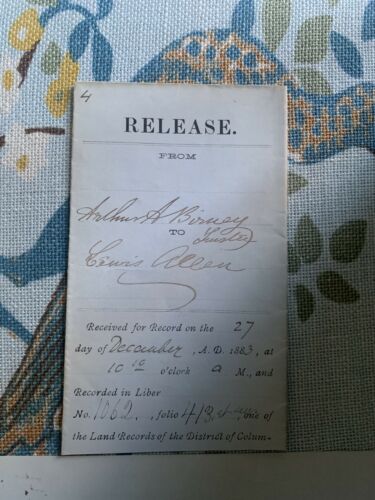 4
RELEASE.
FROM
Arthur A Birney
TO Trustee
Lewis Allen
Received for Record on the 27
day of December, A. D. 1883, at
10 10 o'clock a M., and
Recorded in Liber
No. 1062, folio 413 et of the
the Land Records of the District of Colum-